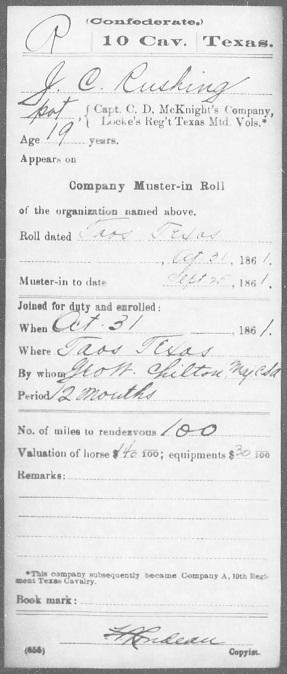 (Confederate.)
R 10 Cav. Texas.
J. C. Rushing
pvt, { Capt. C. D. McKnight's Company, Locke's Reg't Texas Mtd. Vols.*
Age 19 years.
Appears on
Company Muster-in Roll
of the organization named above.
Roll dated Taos Texas
Oct 31, 1861.
Muster-in to date Sept 25, 1861.
Joined for duty and enrolled:
When Oct. 31, 1861.
Where Taos Texas
By whom Geo W. Chilton Maj CSA
Period 12 Months
No. of miles to rendezvous 100
Valuation of horse $140 100; equipments $30 100
Remarks:
*This company subsequently became Company A, 10th Regiment Texas Cavalry.
Book mark:
(656) Copyist.